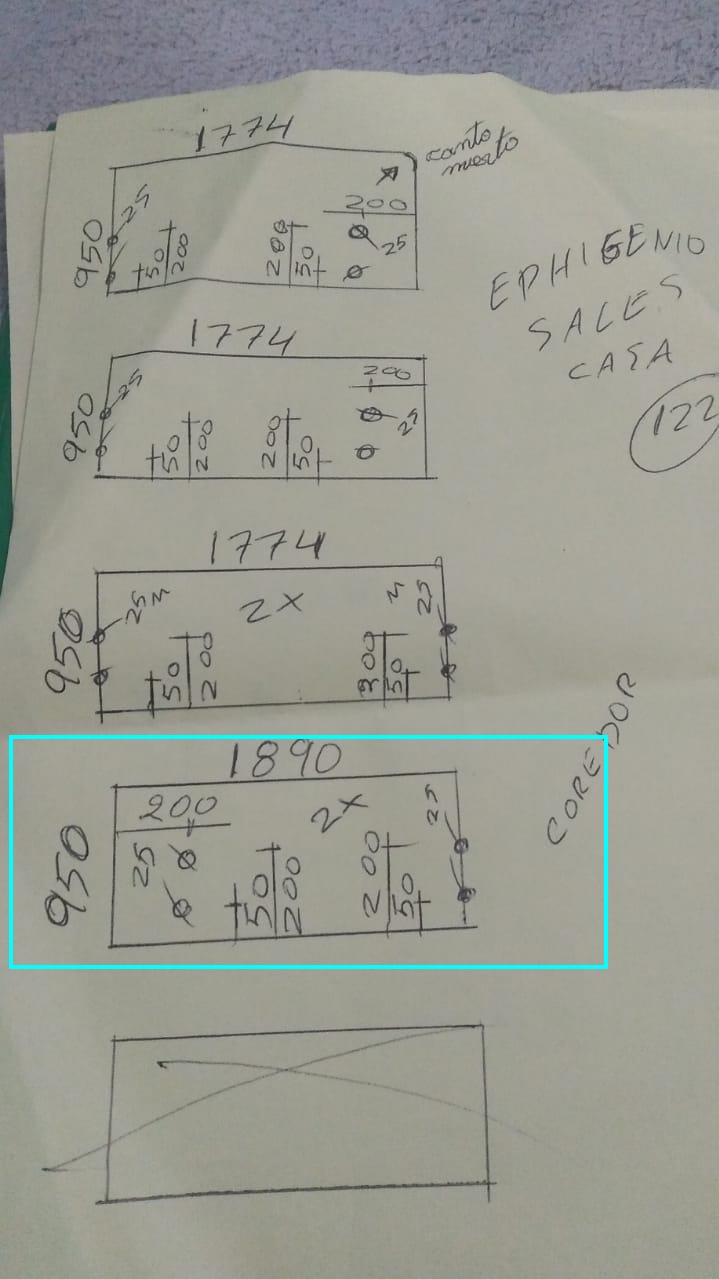 1774
canto
muerto
950
25
50
200
200
50
200
25
EPHIGENIO
SALES
CASA
122
1774
950
25
50
200
200
50
200
25
1774
950
25
3
2X
3
25
50
200
300
50
COREDOR
1890
950
200
25
2X
25
50
200
200
50